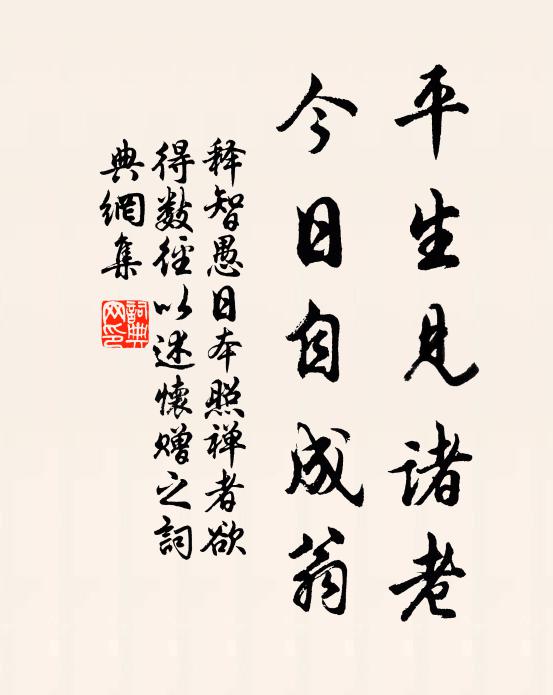 平生見諸老
今日自成翁
释智愚日本照禅者欲
得数徑以述懷赠之詞
典網集
詞典
网印